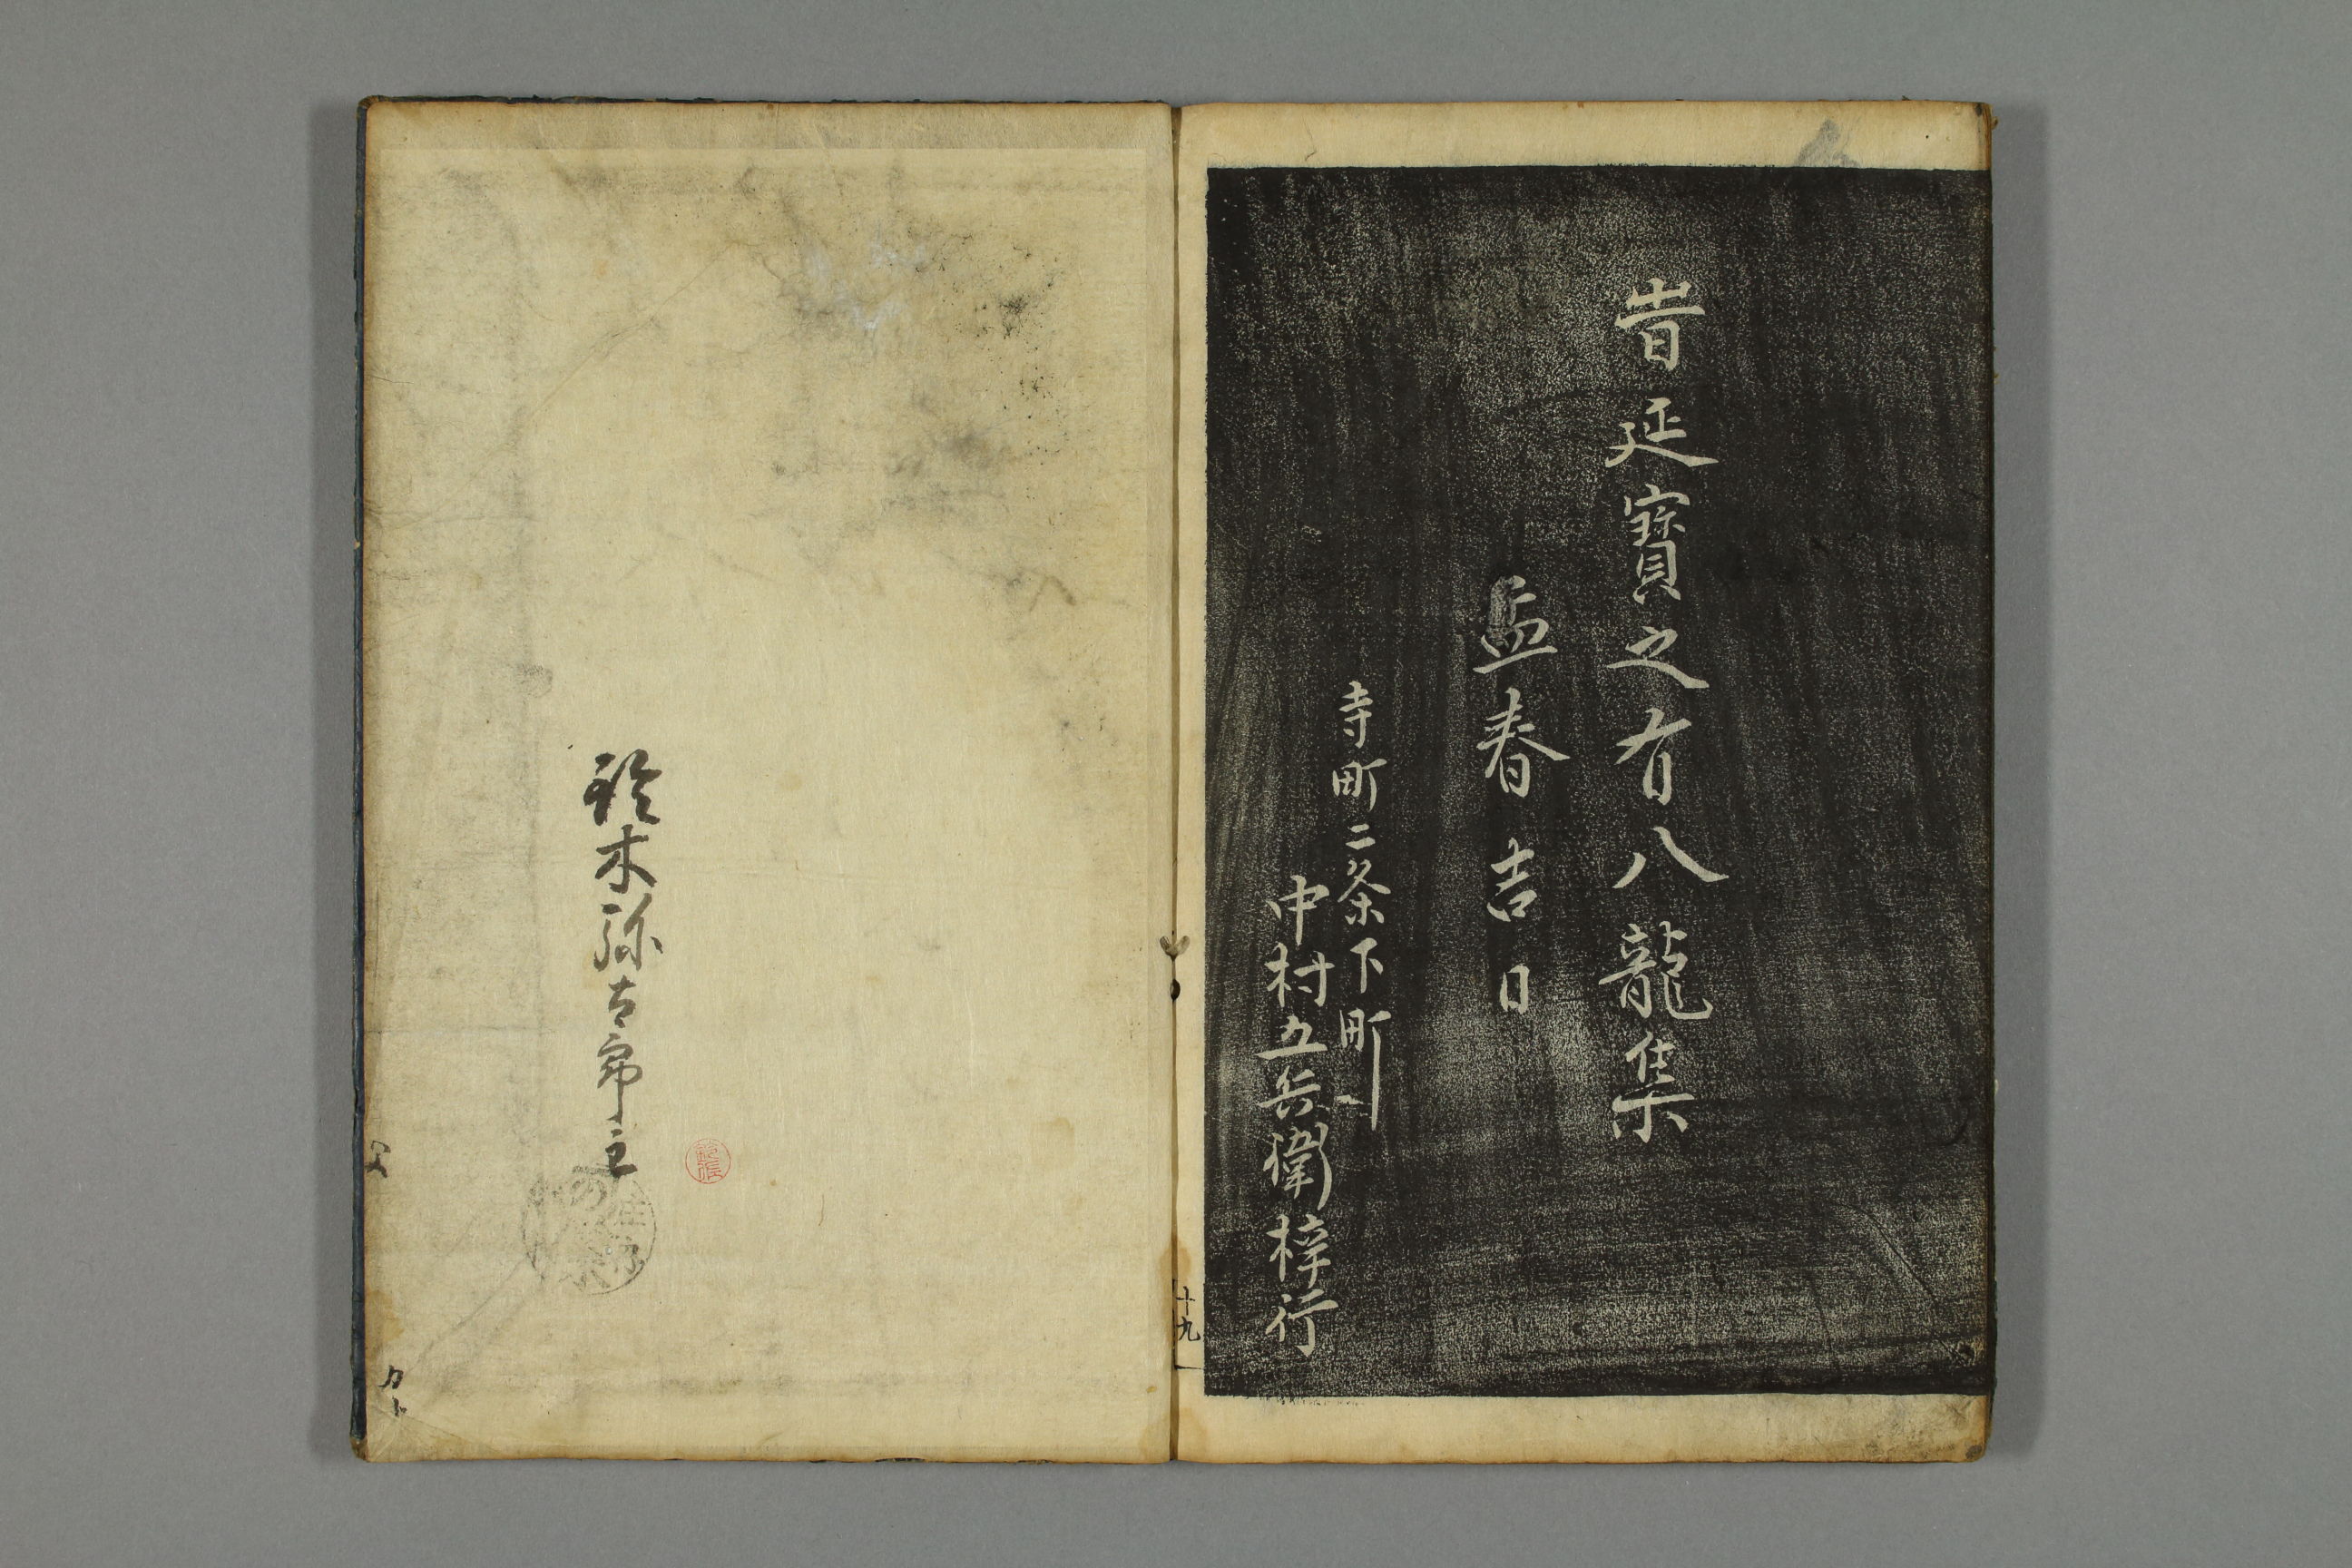 旹延寶之有八龍集
孟春吉日
寺町二条下町
中村五兵衛梓行
十九
鈴木弥吉郎主